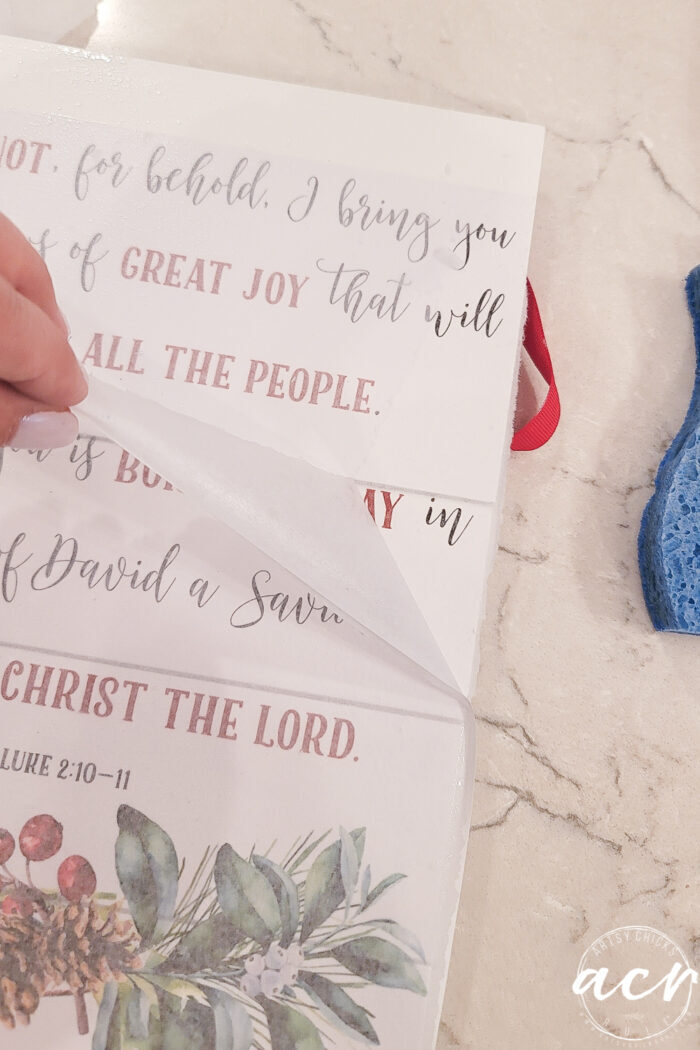 NOT, for behold, I bring you
of GREAT JOY that will
ALL THE PEOPLE.
is in
of David a
CHRIST THE LORD.
LUKE 2:10–11
ARTSY CHICKS
acr